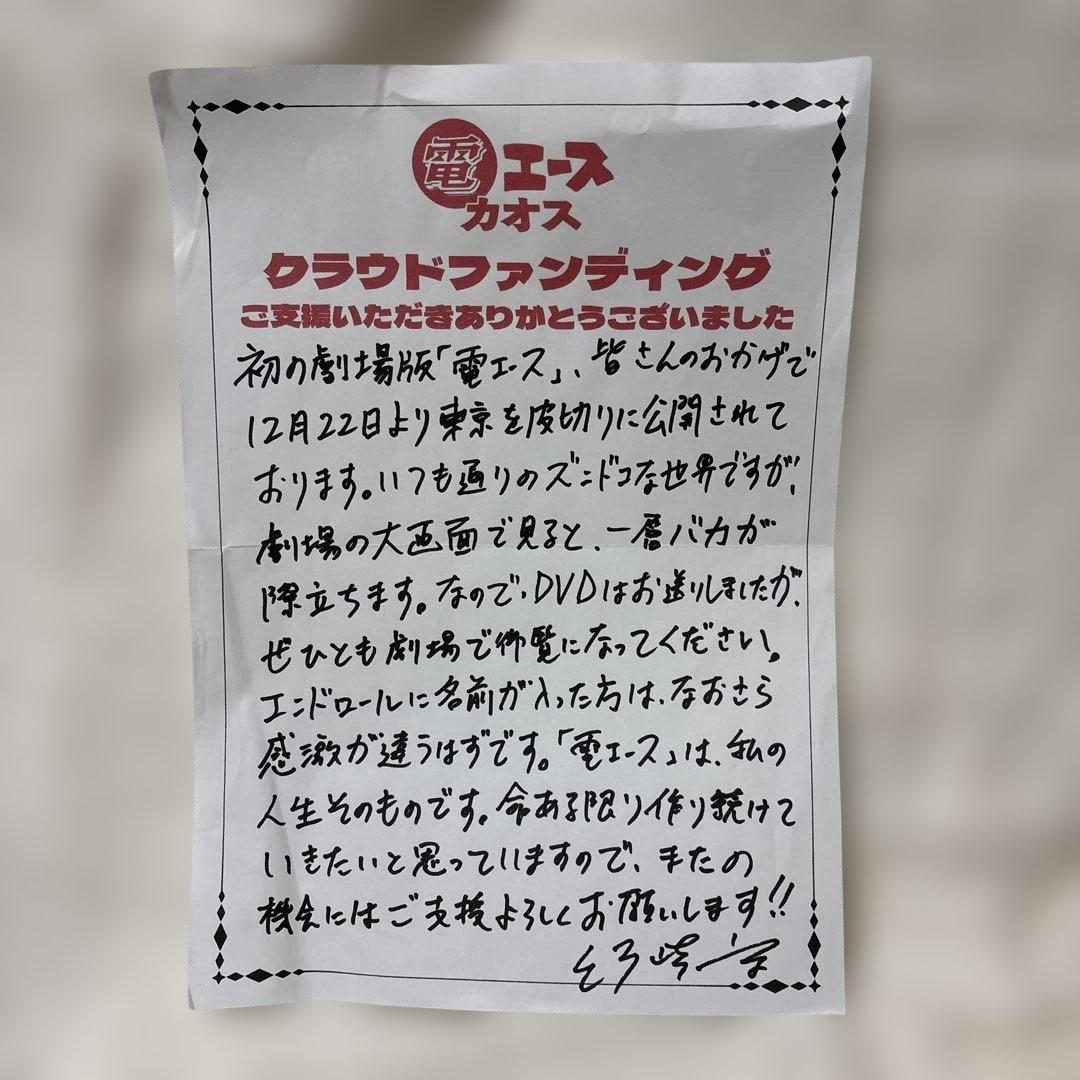 電エース
カオス
クラウドファンディング
ご支援いただきありがとうございました
初の劇場版「電エース」、皆さんのおかげで
12月22日より東京を皮切りに公開されて
おります。いつも通りのズンドコな世界ですが、
劇場の大画面で見ると、一層バカが
際立ちます。なので、DVDはお送りしましたが、
ぜひとも劇場で御覧になってください。
エンドロールに名前が入った方は、なおさら
感激が違うはずです。「電エース」は、私の
人生そのものです。命ある限り作り続けて
いきたいと思っていますので、またの
機会にはご支援よろしくお願いします!!